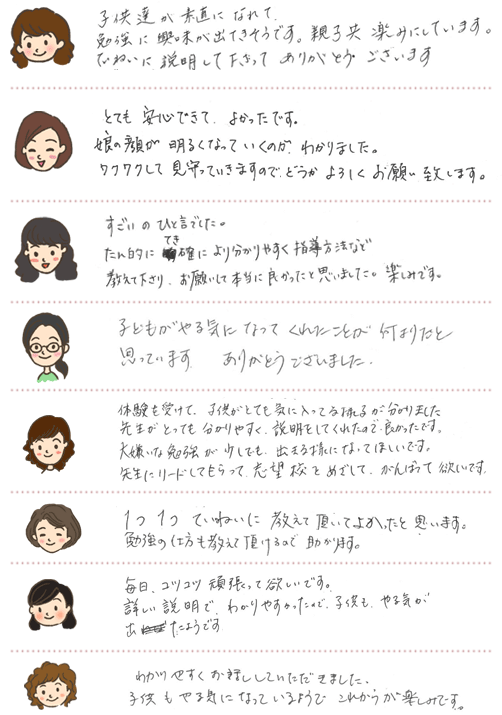 子供達が素直になれて、
勉強に興味が出てきそうです。親子共楽しみにしています。
ていねいに説明して下さって ありがとうございます
とても 安心できて、よかったです。
娘の顔が 明るくなっていくのが、わかりました。
ワクワクして 見守っていきますので、どうか よろしく お願い致します。
すごいの ひと言でした。
たん的に てき確に より分かりやすく 指導方法など
教えて下さり、お願いして本当に良かったと思いました。楽しみです。
子どもがやる気に なって くれたことが 何よりだと
思っています。 ありがとうございました.
体験を受けて、子供がとても気に入ってる様子が分かりました
先生がとっても分かりやすく、説明をしてくれたので良かったです。
大嫌いな勉強が少しでも、出来る様になってほしいです。
先生にリードしてもらって、志望校をめざして、がんばって欲しいです.
1つ1つ ていねいに 教えて頂いてよかったと思います。
勉強の仕方も教えて頂けるので 助かります。
毎日、コツコツ 頑張って欲しいです。
詳しい説明で、わかりやすかったので、子供も、やる気が
出たようです
わかりやすくお話ししていただきました、
子供もやる気になっているようで これからが楽しみです。